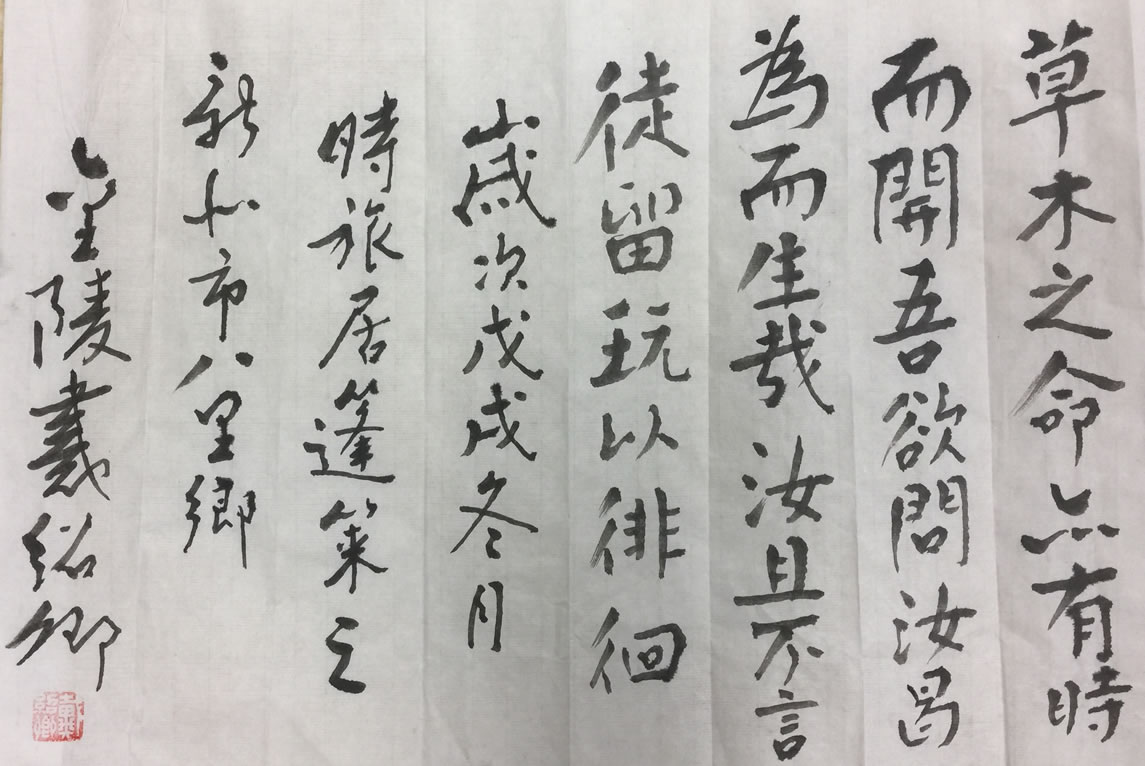 草木之命亦有時
而開吾欲問汝曷
為而生哉汝且不言
徒留玩以徘徊
歲次戊戌冬月
時旅居蓬萊之
新北市八里鄉
金陵戴紹卿
戴紹卿